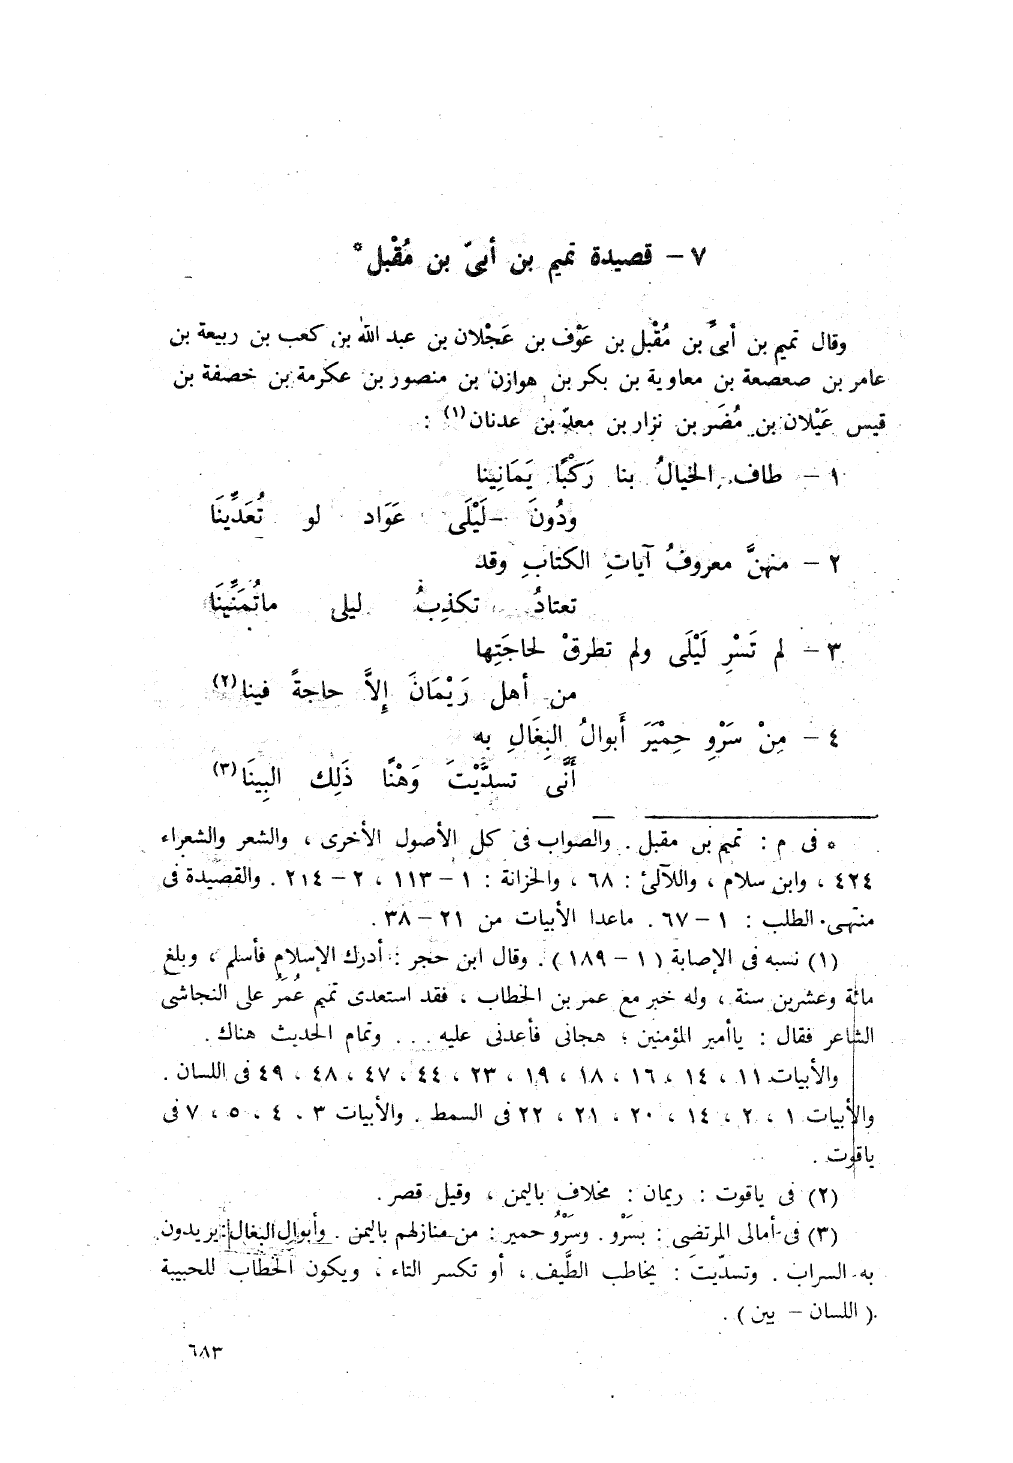 ٧ – قصيدة تميم بن أبىّ بن مُقْبل*
وقال تميم بن أبىِّ بن مُقْبل بن عَوْف بن عَجْلان بن عبد الله بن كعب بن ربيعة بن
عامر بن صعصعة بن معاوية بن بكر بن هوازن بن منصور بن عكرمة بن خصفة بن
قيس عَيْلان بن مُضَر بن نزار بن معدّ بن عدنان (١) :
١ – طاف الخيالُ بنا رَكْبًا يَمَانِينا
ودُونَ لَيْلَى عَوَاد لو تُعَدِّينَا
٢ – منهنَّ معروفُ آياتِ الكتابِ وقد
تعتادُ تكذِبُ ليلى ماتُمَنِّينَا
٣ – لم تَسْرِ لَيْلَى ولم تطرقْ لحاجَتِها
من أهل رَيْمَانَ إِلاَّ حاجةً فينا (٢)
٤ – مِنْ سَرْوِ حِمْيَرَ أَبوالُ البِغَالِ به
أَنَّى تسدَّيْتَ وَهْنًا ذَلِك البِينَا (٣)
* فى م : تميم بن مقبل . والصواب فى كل الأصول الأخرى ، والشعر والشعراء
٤٢٤ ، وابن سلام ، واللآلئ : ٦٨ ، والخزانة : ١ – ١١٣ ، ٢ – ٢١٤ . والقصيدة فى
منتهى الطلب : ١ – ٦٧ . ماعدا الأبيات من ٢١ – ٣٨ .
(١) نسبه فى الإصابة ( ١ – ١٨٩ ) . وقال ابن حجر : أدرك الإسلام فأسلم ، وبلغ
مائة وعشرين سنة ، وله خبر مع عمر بن الخطاب ، فقد استعدى تميم عُمَرَ على النجاشى
الشاعر فقال : ياأمير المؤمنين ؛ هجانى فأعدنى عليه . . . وتمام الحديث هناك .
والأبيات ١١ ، ١٤ ، ١٦ ، ١٨ ، ١٩ ، ٢٣ ، ٤٤ ، ٤٧ ، ٤٨ ، ٤٩ فى اللسان .
والأبيات ١ ، ٢ ، ١٤ ، ٢٠ ، ٢١ ، ٢٢ فى السمط . والأبيات ٣ ، ٤ ، ٥ ، ٧ فى
ياقوت .
(٢) فى ياقوت : ريمان : مخلاف باليمن ، وقيل قصر .
(٣) فى أمالى المرتضى : بسَرْو . وسَرْوُ حمير : من منازلهم باليمن . وأبوال البغال : يريدون
به السراب . وتسدّيتَ : يخاطب الطَّيف ، أو تكسر التاء ، ويكون الخطاب للحبيبة
( اللسان – بين ) .
٦٨٣